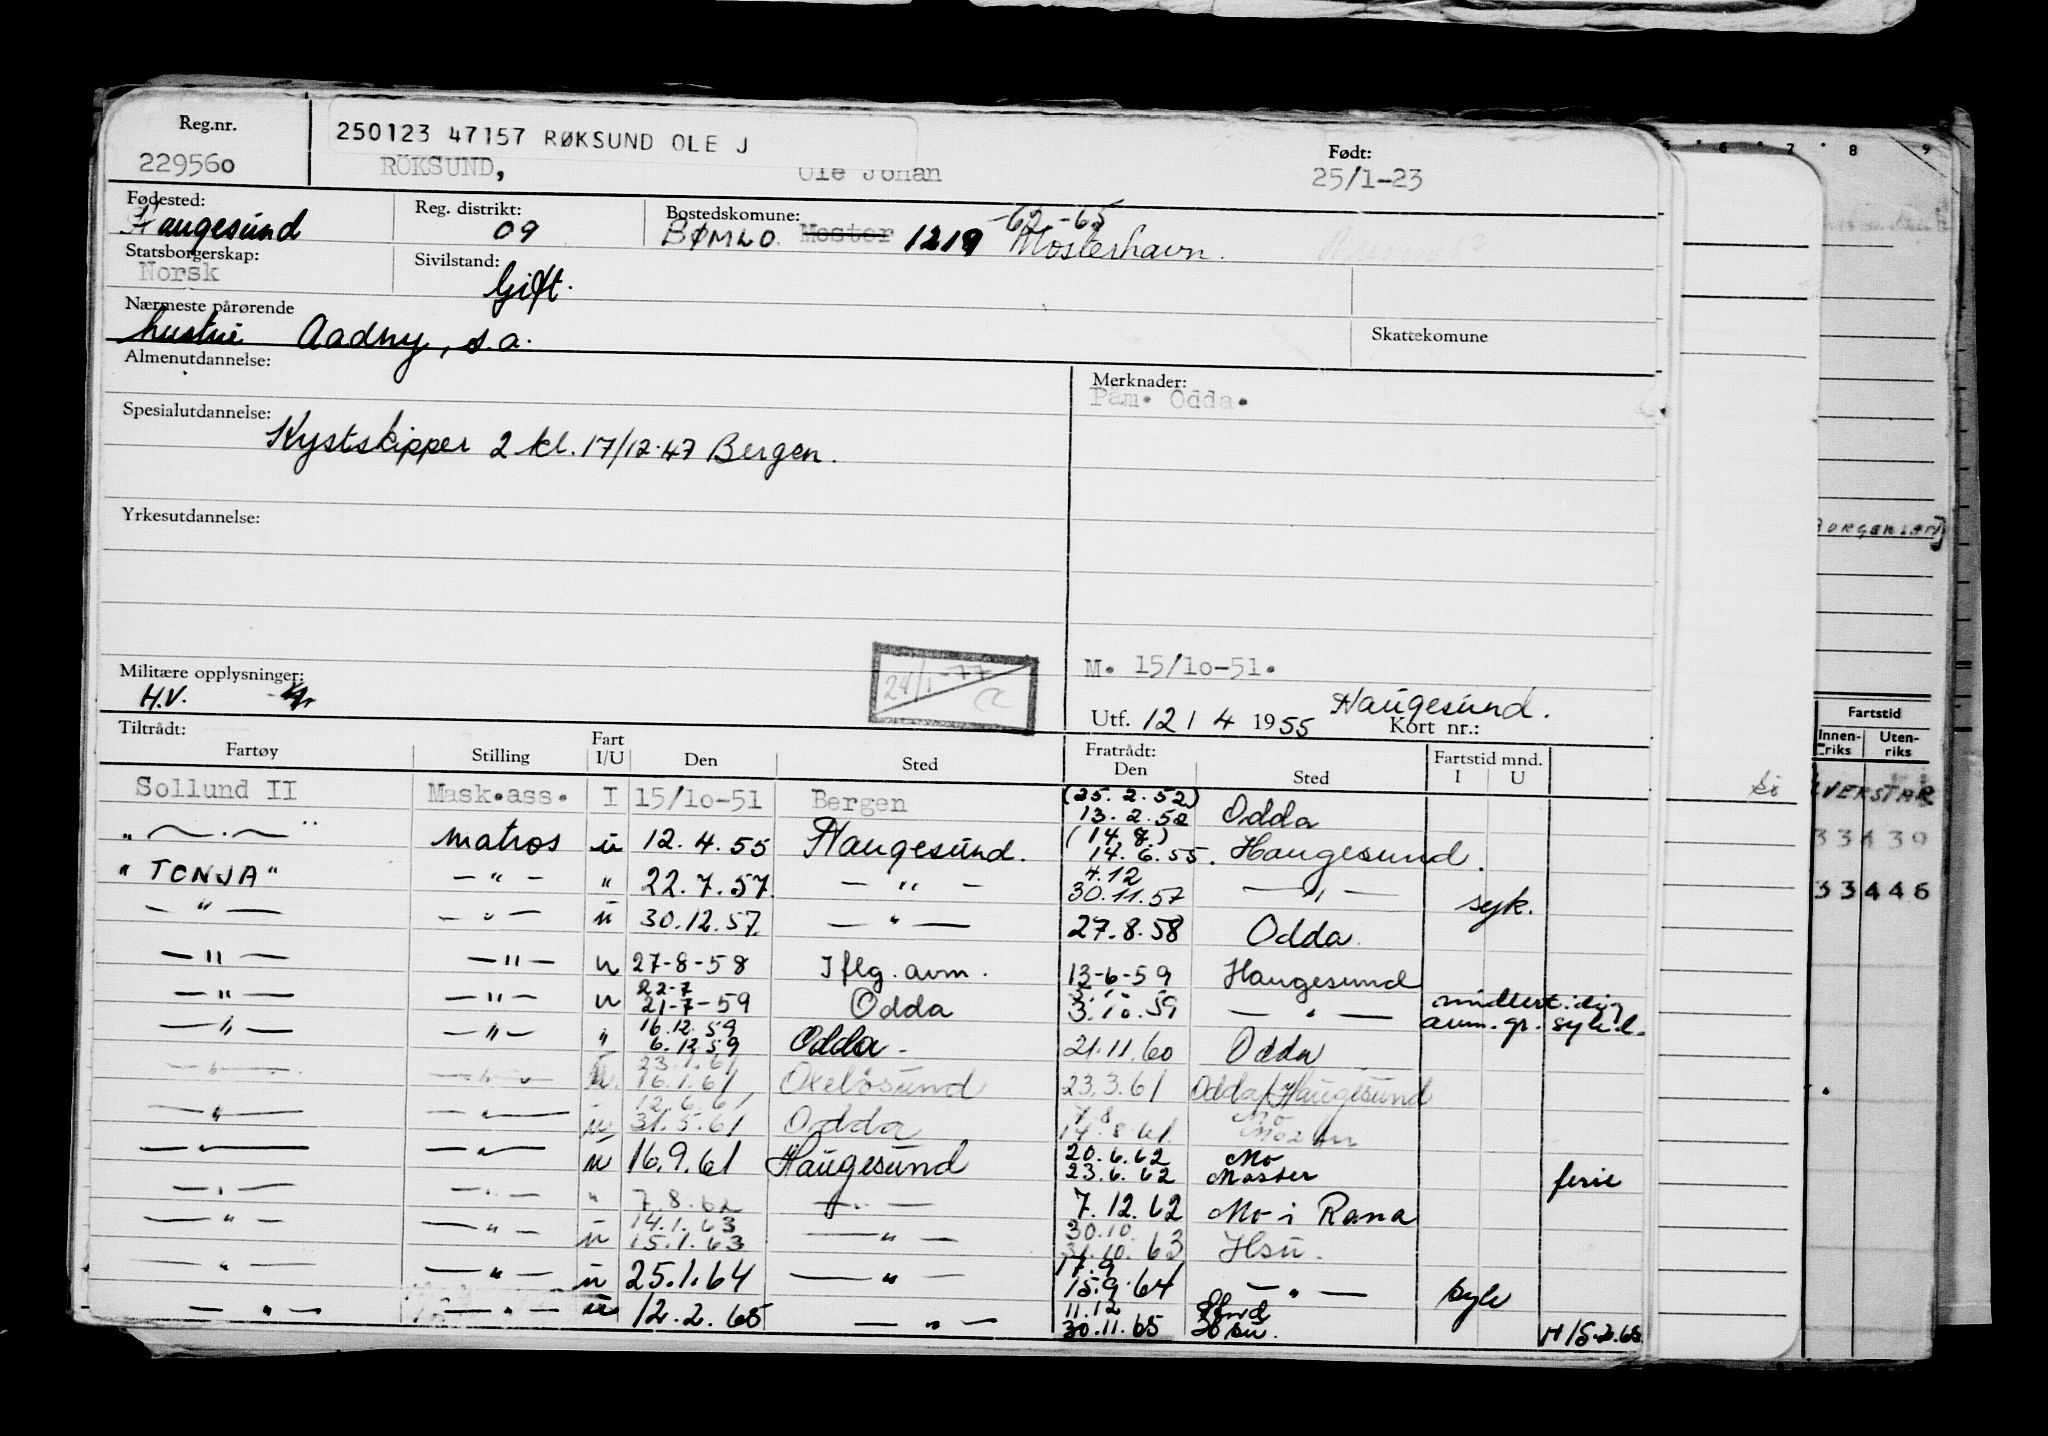 Reg.nr. 250123 47157 RØKSUND OLE J Født:
229560 RÖKSUND, Ole Johan 25/1-23
Fødested: Reg. distrikt: Bostedskomune: -62 -65
Haugesund 09 BØMLO Moster 1219 Mosterhavn.
Statsborgerskap: Sivilstand:
Norsk Gift.
Nærmeste pårørende
hustru Aadny, s.a. Skattekomune
Almenutdannelse: Merknader:
Påm. Odda.
Spesialutdannelse:
Kystskipper 2 kl. 17/12-47 Bergen.
Yrkesutdannelse:
Militære opplysninger: 24/1-77 M. 15/10-51.
H.V. Haugesund.
Utf. 12 / 4 1955 Kort nr.:
Tiltrådt: Fart Fratrådt: Fartstid mnd.
Fartøy Stilling I/U Den Sted Den Sted I U
Sollund II Mask.ass. I 15/10-51 Bergen (25.2.52) 13.2.52 Odda
" — . — " matros u 12.4.55 Haugesund. (14.7.) 14.6.55. Haugesund.
"TONJA" — " — " 22.7.57. — " — 4.12 30.11.57 — " — syk.
— " — — " — u 30.12.57. — " — 27.8.58 Odda.
— " — — " — u 27-8-58 Iflg. avm. 13-6-59 Haugesund
— " — — " — u 22-7 21-7-59 Odda 3.10.59 — " — midlertidig avm. gr. syk.
— " — — " — " 16.12.59 6.12.59 Odda. 21.11.60 Odda
— " — — " — u. 23.1.61 16.1.61 Oxelösund 23.3.61 Odda/Haugesund
— " — — " — u 12.6.61 31.5.61 Odda 7.8 14.8.61. Mo
— " — — " — u 16.9.61 Haugesund 20.6.62 Mo 23.6.62 Moster ferie
— " — — " — " 7.8.62 — " — 7.12.62 Mo i Rana
— " — — " — u 14.1.63 15.1.63 — " — 30.10. 31.10.63 Hsu.
— " — — " — u 25.1.64 — " — 17.9 15.9.64 — " — syk
— " — — " — u 12.2.65 — " — 11.12 30.11.65 Hsu. H 15.2.65
5 6 7 8 9
Fartstid
Innenriks Utenriks
33439
33446